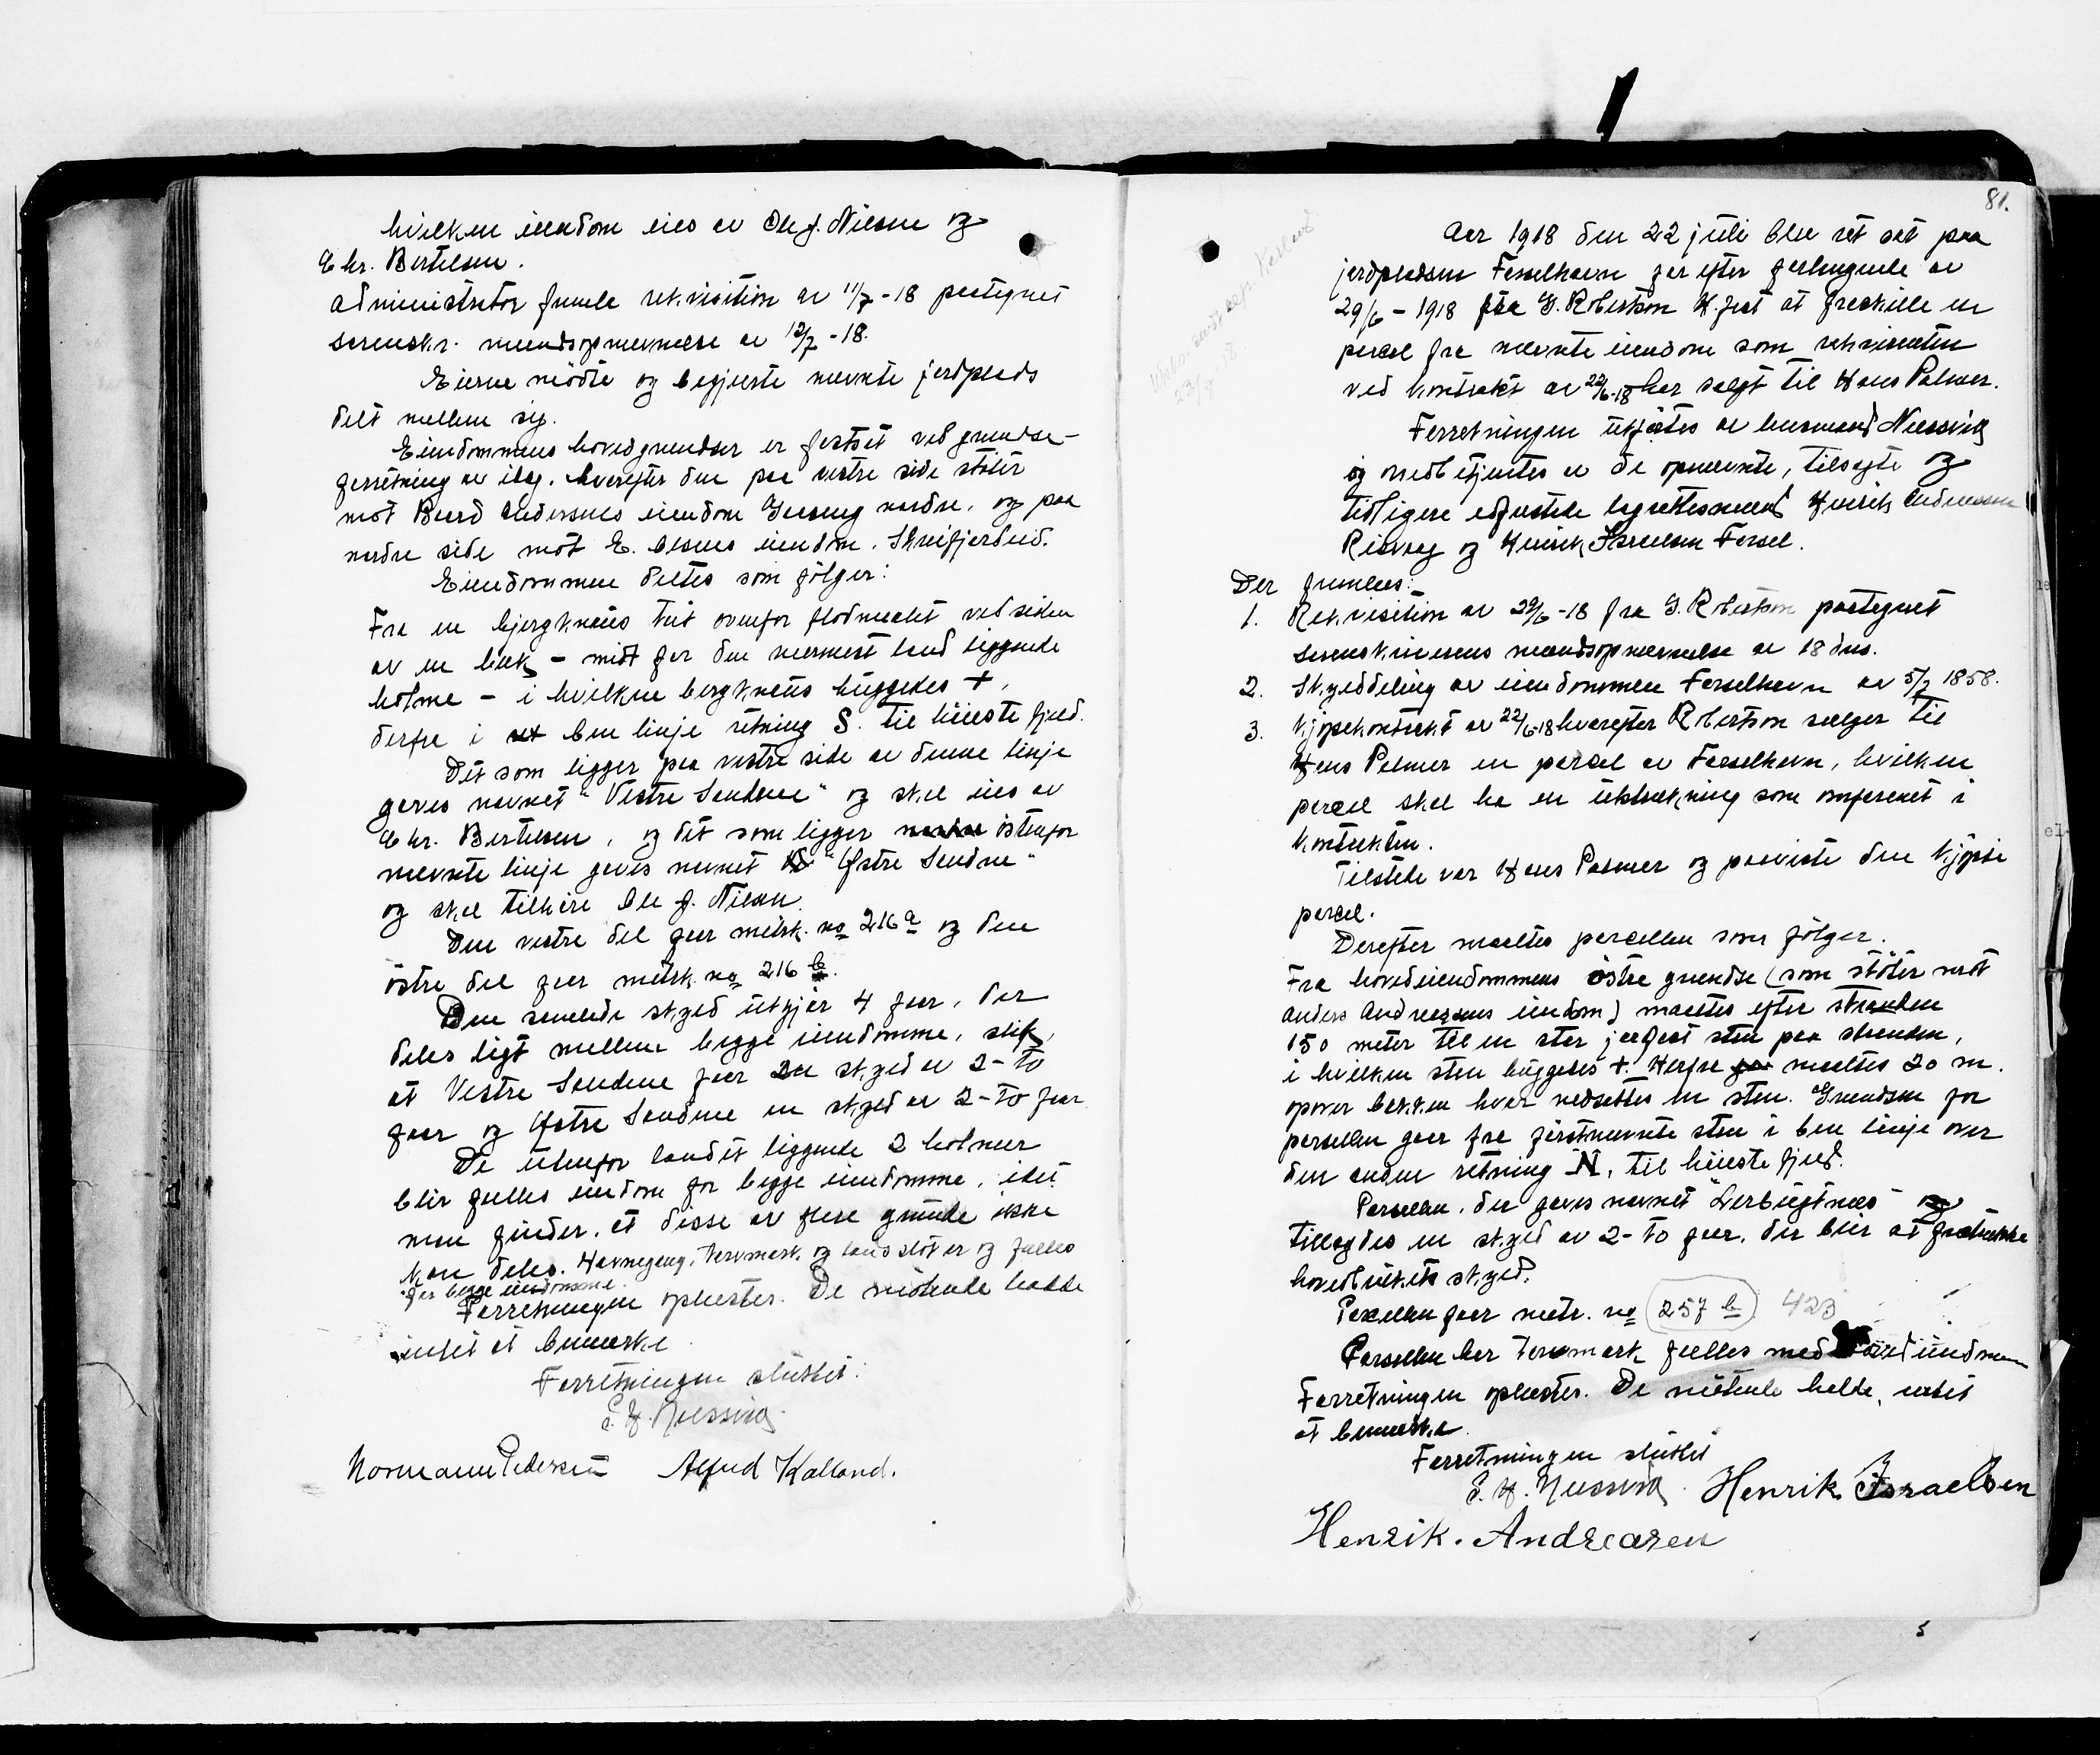 hvilken eiendom eies av Ole J. Nilsen og
Chr. Bertelsen.
Administrator fremla rekvisition av 11/7-18 paategnet
sorenskr. mændsopnævnelse av 12/7-18.
Eierne mödte og begjærte nævnte jordplads
delt mellem sig.
Eiendommens hovedgrændser er fastsat ved grændse-
forretning av idag, hvorefter den paa vestre side stöter
mot Baard Andersens eiendom nordre, og paa
nordre side mot E. Olsens eiendom.
Eiendommen deltes som fölger:
Fra en bjergknaus tæt ovenfor flodmaalet ved siden
av en bæk - midt for den nærmest land liggende
holme - i hvilken bergknaus huggedes +,
derfra i ret ben linje retning S. til höieste fjeld.
Det som ligger paa vestre side av denne linje
gaves navnet "Vestre Sandnes" og skal eies av
Chr. Bertelsen, og det som ligger östenfor
nævnte linje gaves navnet "Östre Sandnes"
og skal tilhöre Ole J. Nilsen.
Den vestre del faar matrk. no 216 a og den
östre del faar matrk. no 216 b.
Den samlede skyld utgjör 4 øre, der
deles ligt mellem begge eiendomme, slik,
at Vestre Sandnes faar en skyld av 2- to
øre og Östre Sandnes en skyld av 2- to øre
De utenfor landet liggende 2 holmer
blir fælles eiendom for begge eiendomme, idet
man finder, at disse av flere grunde ikke
kan deles. Havnegang, torvmark og er og fælles
for begge eiendomme.
Forretningen oplæstes. De mötende hadde
intet at bemerke
Forretningen sluttet:
E. H. Neessvig
Normann Pedersen Alfred Kalland.
81.
Aar 1918 den 22 juli blev ret sat paa
jordpladsen Forselhavn for efter forlangende av
29/6 - 1918 fra G. Robertson H.fest at fraskille en
parcel fra nævnte eiendom som rekvirenten
ved kontrakt av 22/6-18 har solgt til Hans Palmer.
Forretningen utförtes av lensmand Neessvig
og medbetjentes av de opnævnte, tilsagte og
tidligere edfæstede lagrettesmænd Henrik Andreassen
Risvaag og Henrik Israelsen Forsel.
Der fremlaes:
1. Rekvisition av 29/6-18 fra G. Robertson paategnet
sorenskriverens mændsopnævnelse av 18 dns.
2. Skylddeling av eiendommen Forselhavn av 5/7 1858.
3. Kjöpekontrakt av 22/6-18 hvorefter Robertson sælger til
Hans Palmer en parcel av Forselhavn, hvilken
parcel skal ha en utstrækning som omforenet i
kontrakten.
Tilstede var Hans Palmer og paaviste den kjöpte
parcel.
Derefter maaltes parcellen som fölger.
Fra hovedeiendommens östre grændse (som stöter mot
Anders Andreassens eiendom) maaltes efter stranden
150 meter til en stor jordfast sten paa stranden,
i hvilken sten huggedes +. Herfra maaltes 20 m.
opover bakken hvor nedsattes en sten. Grændsen for
parsellen gaar fra förstnævnte sten i ben linje over
den anden retning N. til höieste fjeld.
Parsellen, der gaves navnet og
tillagdes en skyld av 2- to øre, der blir at fratrække
hovedbrukets skyld.
Parcellen faar matr. no 257 b 423
Parsellen har torvmark fælles med eiendommen
Forretningen oplæstes. De mötende hadde intet
at bemerke
Forretningen sluttet
E. H. Neessvig. Henrik Israelsen
Henrik. Andreasen